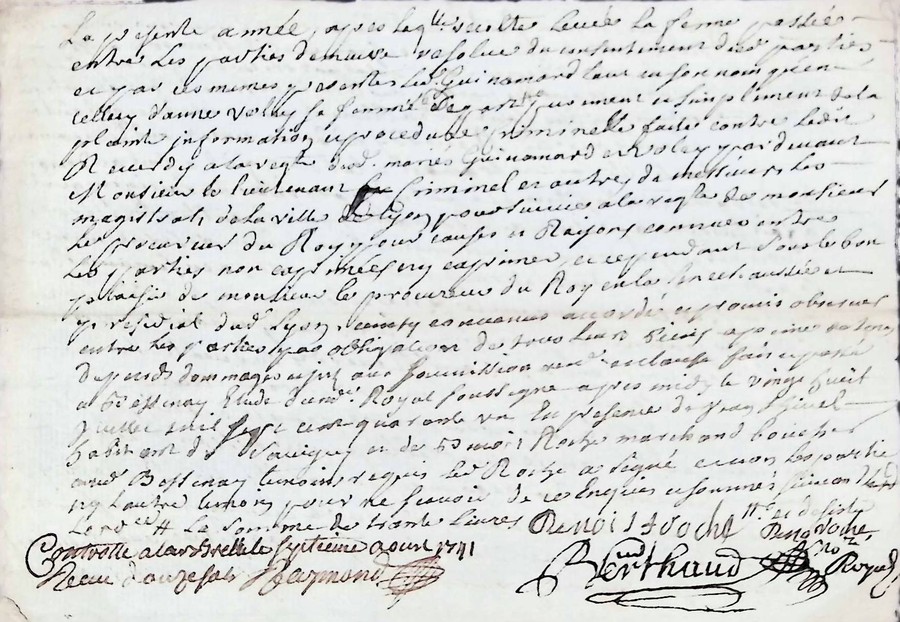 La presente année, apres laq.lle recolte levée la ferme passée
entre les parties demeure resolue du consentement desd. parties
et par ces memes presentes led. Guinamard tant en son nom qu'en
celluy d'anne Voley sa femme se depart purement et simplement de la
plainte information et procedure criminelle faite contre ledit
a la reqte desd. mariés Guinamard et Voley pardevant
Monsieur le lieutenant Criminel et autres de messieurs les
magistrats de la ville de Lyon poursuivie a la reqte de monsieur
le procureur du Roy pour causes et Raisons connues entre
les parties non exprimées ny exprimer, et cependant sous le bon
plaisir de monsieur le procureur du Roy en la Senechaussée et
presidial dud. Lyon ainsy convenu accordé et promis observer
entre les parties par obligation de tous leurs biens a peine de tous
depends dommages aux soumission clause fait et passé
a Bessenay Etude du no.re Royal soussigné apres midy le vingt huit
Juillet mil sept cent quarante un En presence de Jean
habitant de Savigny et de Benoit Roche marchand boucher
aud. Bessenay temoins requis led. Roche a signé et non les parties
ny l'autre temoin pour ne scavoir de ce Enquis et sommés
La somme de trante livres Benoist Roche
Controllé a la Bresle le septieme aoust 1741
Receu douze sols Raymond Berthaud no.re Royal